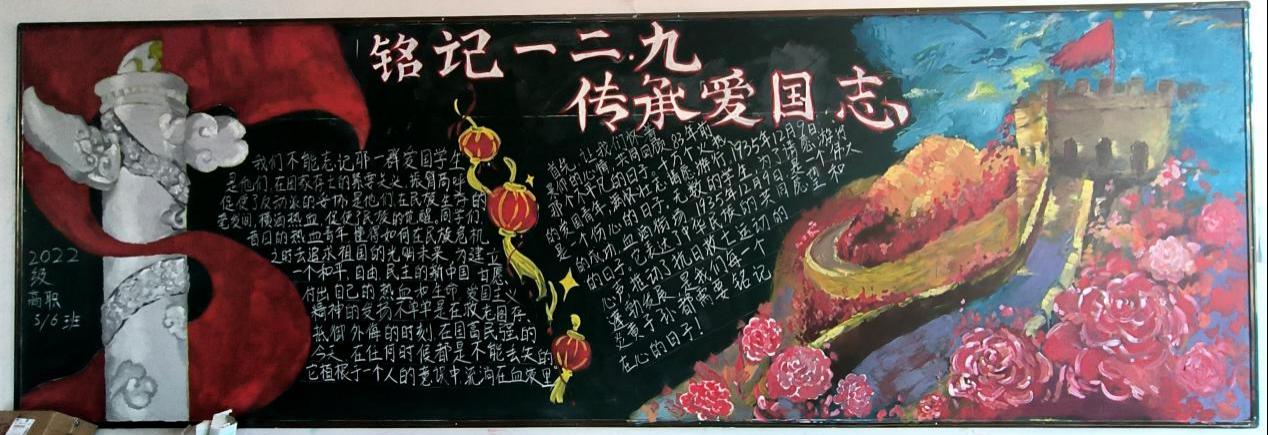 铭记一二.九
传承爱国志
我们不能忘记那一群爱国学生
是他们,在国家存亡的紧要关头,振臂高呼
是他们,在民族生存的
危机,横洒热血,促使了民族的觉醒,同学们
昔日的热血青年懂得如何在民族危机
之时去追求祖国的光明未来,为建立
一个和平、自由、民主的新中国,甘愿
付出自己的热血和生命,爱国主义
精神的发扬不单单是在救亡图存、
抵御外侮的时刻,在国富民强的
今天,在任何时候都是不能丢失的
它植根于一个人的意识中,流淌在血液里
首先,让我们怀着
崇仰的心情,共同回顾83年前
那个难忘的日子。十万个火热
的爱国青年,集体壮志,请愿游行,1935年12月9日
是一个伤心的日子,无数的学生,为了请愿游行
的成功,血洒街场,1935年12月9日是一个伟大
的日子,它表达了中华民族的共同愿望和
心声,推动了抗日救亡运动的
蓬勃发展,是我们每一个
炎黄子孙都需要铭记
在心的日子!
2022
级
高职
5/6班